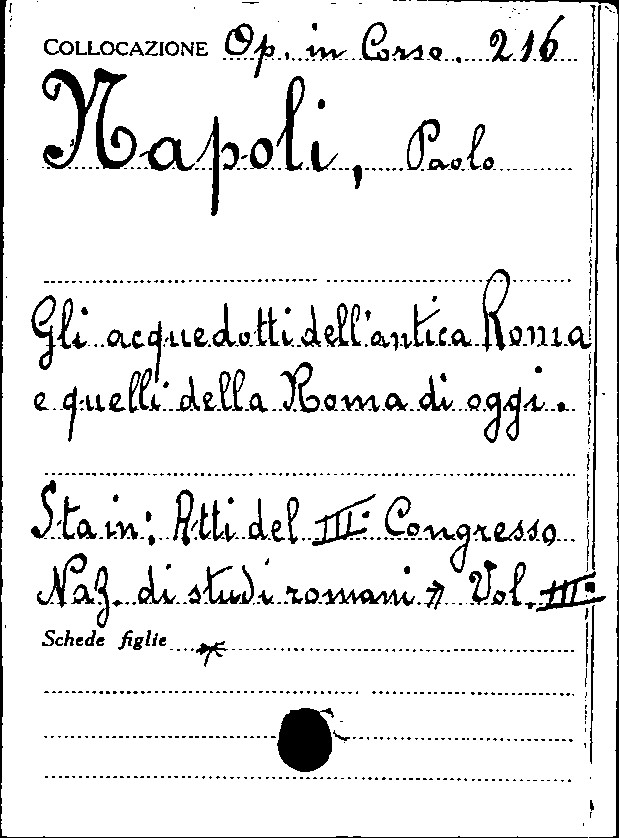 COLLOCAZIONE Op. in Corso. 216
Napoli, Paolo
Gli acquedotti dell'antica Roma
e quelli della Roma di oggi.
Sta in: Atti del III° Congresso
Naz. di studi romani » Vol. III°
Schede figlie